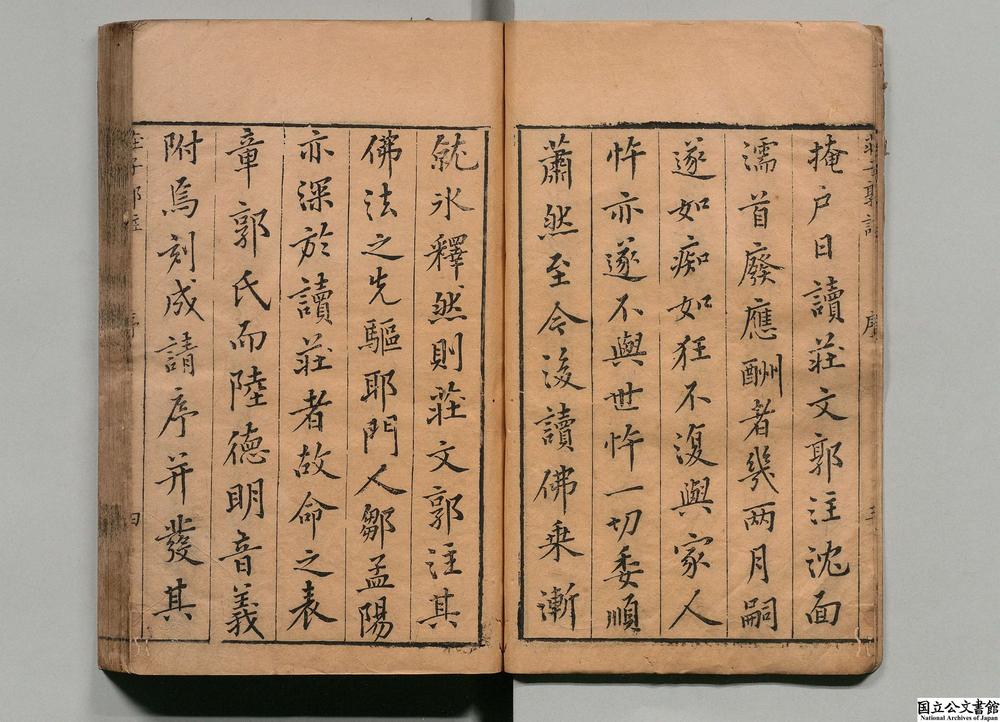 莊子郭註 序 三
掩戶日讀莊文郭注沈面
濡首廢應酬者幾兩月嗣
遂如痴如狂不復與家人
忤亦遂不與世忤一切委順
蕭然至今後讀佛乗漸
就氷釋然則莊文郭注其
佛法之先驅耶門人鄒孟陽
亦深於讀莊者故命之表
章郭氏而陸德明音義
附焉刻成請序并發其
莊子郭註 序 四
国立公文書館
National Archives of Japan